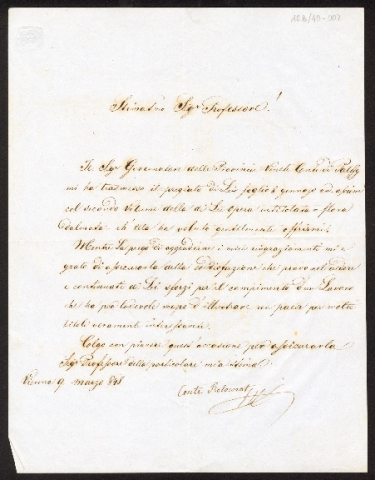 Stimatis.mo Sig.r Professore!
Il Sig.r Governatore delle Provincie Venete Conte di Palffy
mi ha trasmesso il pregiato di Lei foglio 6 gennajo ed
col secondo volume della di Lei opera intitolata - flora
dalmata - ch'Ella ha voluto gentilmente offerirmi.
Mentre La prego di aggradirne i miei ringraziamenti mi è
grato di assicurarla della soddisfazione che provo nel vedere
i continuati di Lei sforzi per il compimento d'un Lavoro
che ha per lodevole scopo d'illustrare un paese per molti
titoli altamente interessante.
Colgo con piacere quest'occasione per assicurarla
Sig.r Professore della particolare mia stima.
Vienna 9 marzo 848
Conte Kolowrat